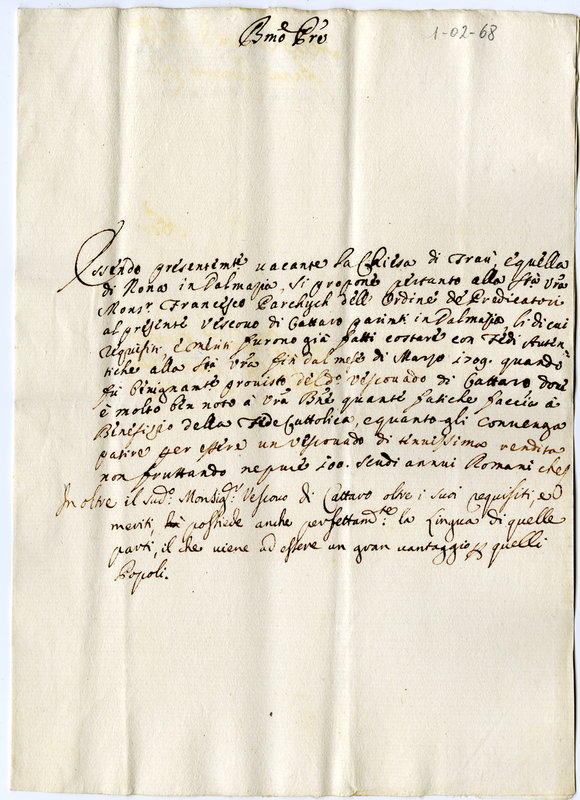 Bmo Pre
1-02-68
Essendo presentemte vacante la Chiesa di Traù, e quella
di Nona in Dalmazia, si propone pertanto alla Stà Vra
Monsr. Francesco Parchych dell' Ordine de Predicatori
al presente Vescovo di Cattaro parimti in Dalmazia, li di cui
requisiti, e meriti furono già fatti costare con Fedi Auten-
tiche alla Stà Vra fin dal mese di Marzo 1709. quando
fù benignante provisto del do. Vescovado di Cattaro dove
è molto ben noto à Vra Bne quante fatiche faccia à
Benefizio della Fede Cattolica, e quanto gli convenga
patire per essere un Vescovado di tenuissima rendita
non fruttando ne pure 100. scudi annui Romani che
In oltre il sudo. Monsigr. Vescovo di Cattaro oltre i suoi requisiti, e
meriti, possiede anche perfettamte. la Lingua di quelle
parti, il che viene ad essere un gran vantaggio p quelli
Popoli.